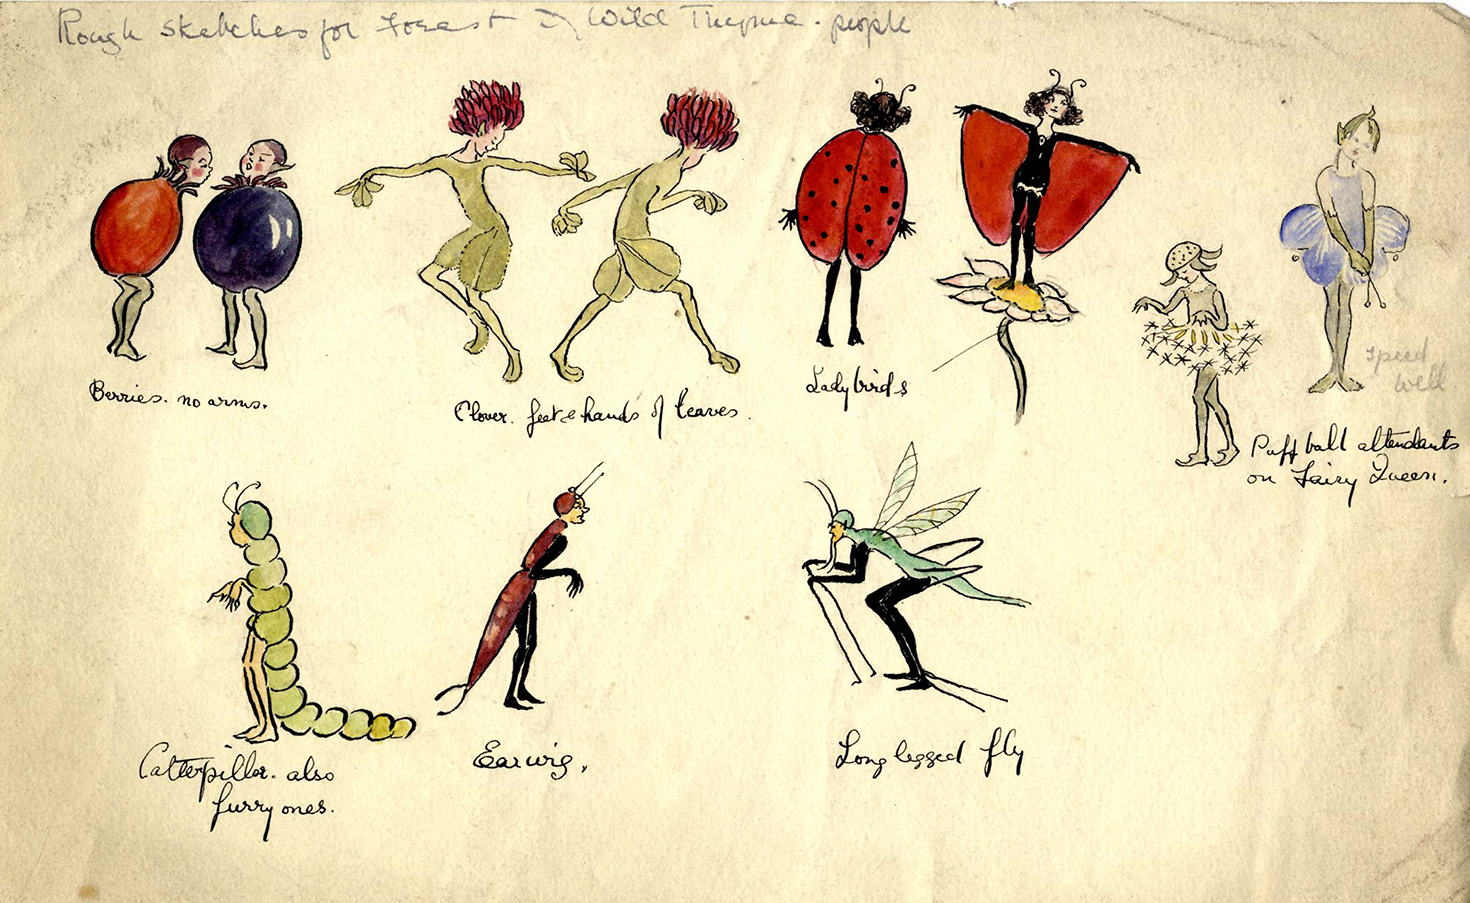 Rough Sketches for Forest of Wild Thyme. people
Berries. no arms.
Clover. feet & hands of leaves.
Ladybirds
Speed
well
Puff ball attendants
on Fairy Queen.
Catterpillar. also
furry ones.
Earwig,
Long legged fly